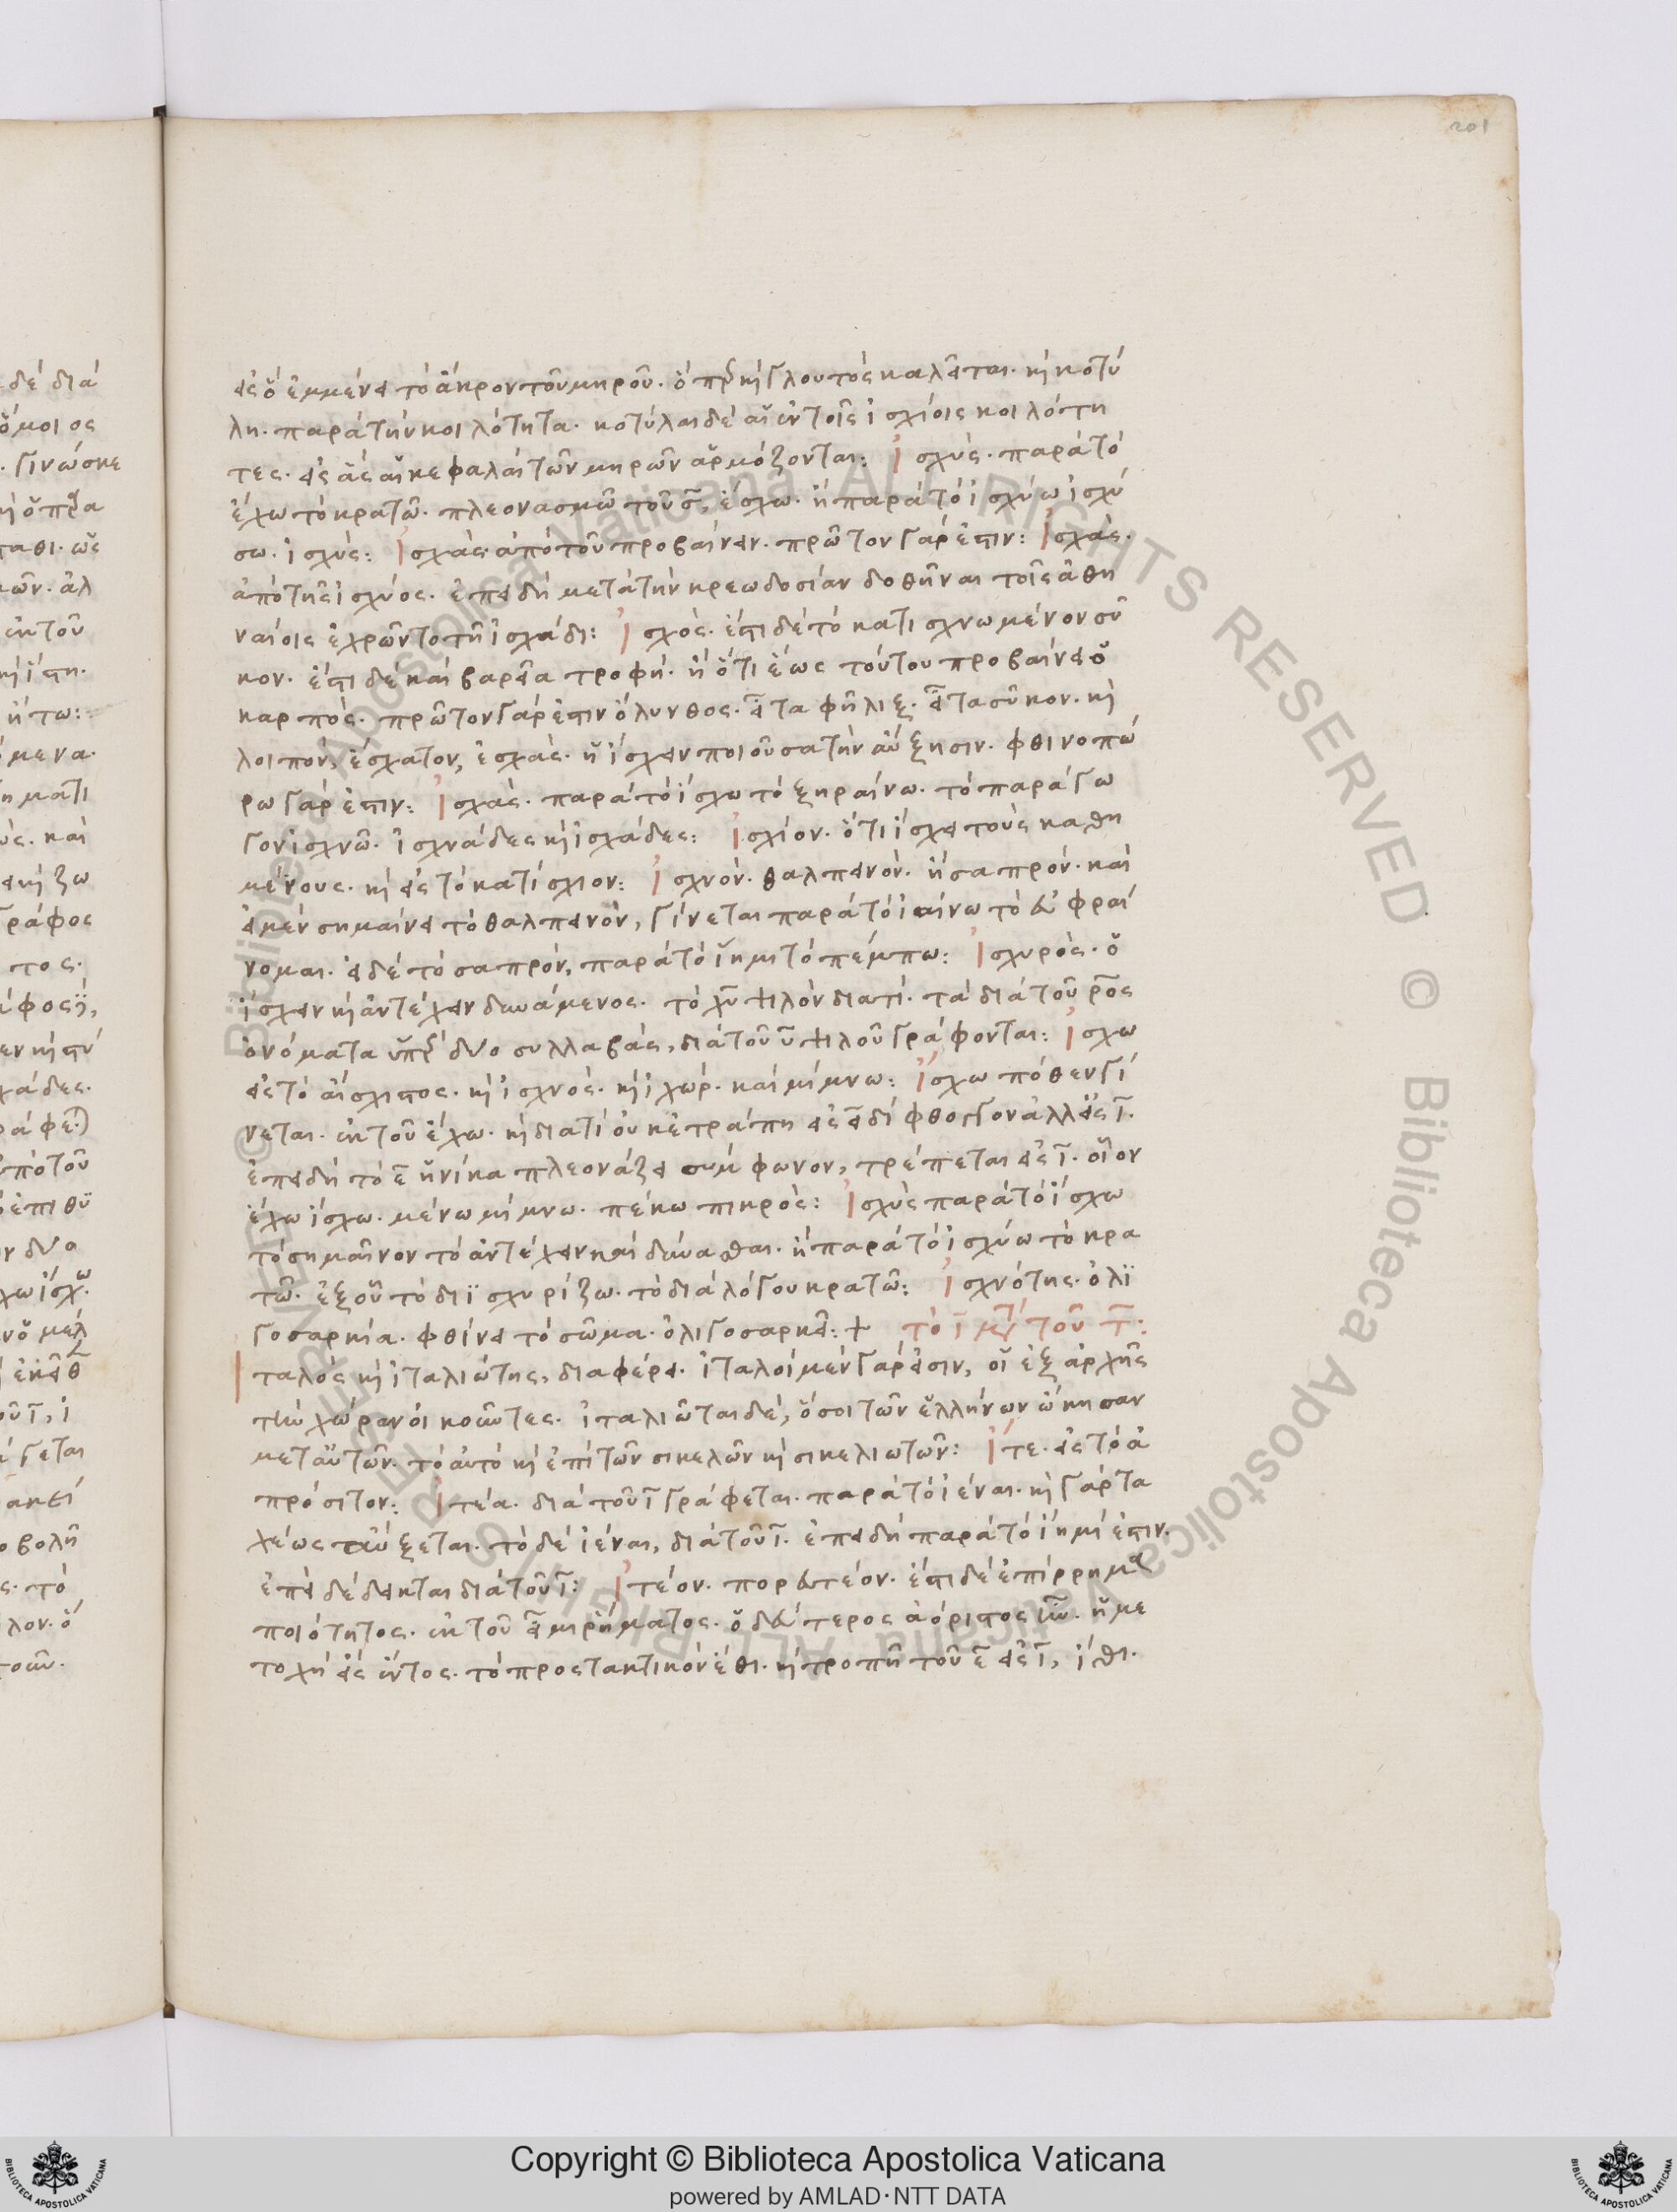 201
εἰς ὃ ἐμμένει τὸ ἄκρον τοῦ μηροῦ. ὅπερ καὶ γλουτὸς καλεῖται. καὶ κοτύ
λη. παρὰ τὴν κοιλότητα. κοτύλαι δὲ αἱ ἐν τοῖς ἰσχίοις κοιλότη
τες. εἰς ἃς αἱ κεφαλαὶ τῶν μηρῶν ἁρμόζονται: Ἰσχύς. παρὰ τὸ
ἔχω τὸ κρατῶ. πλεονασμῶ τοῦ σ, ἔσχω. ἢ παρὰ τὸ ἰσχύω ἰσχύ
σω. ἰσχύς: Ἰσχάς. ἀπὸ τοῦ προβαίνειν. πρῶτον γάρ ἐστιν: Ἰσχάς.
ἀπὸ τῆς ἰσχύος. ἐπειδὴ μετὰ τὴν κρεωδοσίαν δοθῆναι τοῖς ἀθη
ναίοις ἐχρῶντο τῆ ἰσχάδι: Ἰσχός. ἔστι δὲ τὸ κατισχνωμένον σῦ
κον. ἔστι δὲ καὶ βαρεῖα τροφή. ἢ ὅτι ἕως τούτου προβαίνει ὁ
καρπός. πρῶτον γάρ ἐστιν ὄλυνθος. εἶτα φῆλιξ. εἶτα σῦκον. καὶ
λοιπόν, ἔσχατον, ἐσχάς. ἢ ἴσχειν ποιοῦσα τὴν αὔξησιν. φθινοπώ
ρω γάρ ἐστιν: Ἰσχάς. παρὰ τὸ ἴσχω τὸ ξηραίνω. τὸ παράγω
γον ἰσχνῶ. ἰσχνάδες καὶ ἰσχάδες: Ἰσχίον. ὅτι ἴσχει τοὺς καθη
μένους. καὶ εἰς τὸ κατίσχιον: Ἰσχνόν. θαλπεινόν. ἢ σαπρόν. καὶ
εἰ μὲν σημαίνει τὸ θαλπεινόν, γίνεται παρὰ τὸ ἰαίνω τὸ εὐφραί
νομαι. εἰ δὲ τὸ σαπρόν, παρὰ τὸ ἵημι τὸ πέμπω: Ἰσχυρός. ὁ
ἴσχειν καὶ ἀντέχειν δυνάμενος. τὸ χυ ψιλὸν διατί. τὰ διὰ τοῦ ρος
ὀνόματα ὑπὲρ δύο συλλαβάς, διὰ τοῦ υ ψιλοῦ γράφονται: Ἴσχω
εἰς τὸ αἴσχιστος. καὶ ἰσχνός. καὶ ἰχώρ. καὶ μίμνω: Ἴσχω πόθεν γί
νεται. ἐκ τοῦ ἔχω. καὶ διατί οὐκ ἐτράπη εἰς ει δίφθογγον ἀλλ' εἰς ι.
ἐπειδὴ τὸ ε ἡνίκα πλεονάζει σύμφωνον, τρέπεται εἰς ι. οἷον
ἔχω ἴσχω. μένω μίμνω. πέκω πικρός: Ἰσχὺς παρὰ τὸ ἴσχω
τὸ σημαῖνον τὸ ἀντέχειν καὶ δύνασθαι. ἢ παρὰ τὸ ἰσχύω τὸ κρα
τῶ. ἐξ οὗ τὸ διϊσχυρίζω. τὸ διὰ λόγου κρατῶ: Ἰσχνότης. ὀλι
γοσαρκία. φθίνει τὸ σῶμα. ὀλιγοσαρκεῖ: + τὸ ι μετὰ τοῦ τ:
Ἰταλὸς καὶ ἰταλιώτης, διαφέρει. ἰταλοὶ μὲν γάρ εἰσιν, οἱ ἐξ ἀρχῆς
τὴν χώραν οἰκοῦντες. ἰταλιῶται δέ, ὅσοι τῶν ἑλλήνων ὤκησαν
μετ' αὐτῶν. τὸ αὐτὸ καὶ ἐπὶ τῶν σικελῶν καὶ σικελιωτῶν: Ἴτε. εἰς τὸ ἀ
πρόσιτον: Ἰτέα. διὰ τοῦ ι γράφεται. παρὰ τὸ ἰέναι. καὶ γὰρ τα
χέως αὔξεται. τὸ δὲ ἰέναι, διὰ τοῦ ι. ἐπειδὴ παρὰ τὸ ἴημί ἐστιν.
ἐπεὶ δέδεικται διὰ τοῦ ι: Ἰτέον. πορευτέον. ἔστι δὲ ἐπίρρημα
ποιότητος. ἐκ τοῦ εἶμι ῥήματος. ὁ δεύτερος ἀόριστος ἦν. ἡ με
τοχὴ εἲς ἔντος. τὸ προστακτικὸν ἔθι. καὶ τροπῆ τοῦ ε εἰς ι, ἴθι.
© Biblioteca Apostolica Vaticana ALL RIGHTS RESERVED © Biblioteca Apostolica Vaticana ALL RIGHTS RESERVED
Copyright © Biblioteca Apostolica Vaticana
powered by AMLAD·NTT DATA
BIBLIOTECA APOSTOLICA VATICANA
BIBLIOTECA APOSTOLICA VATICANA